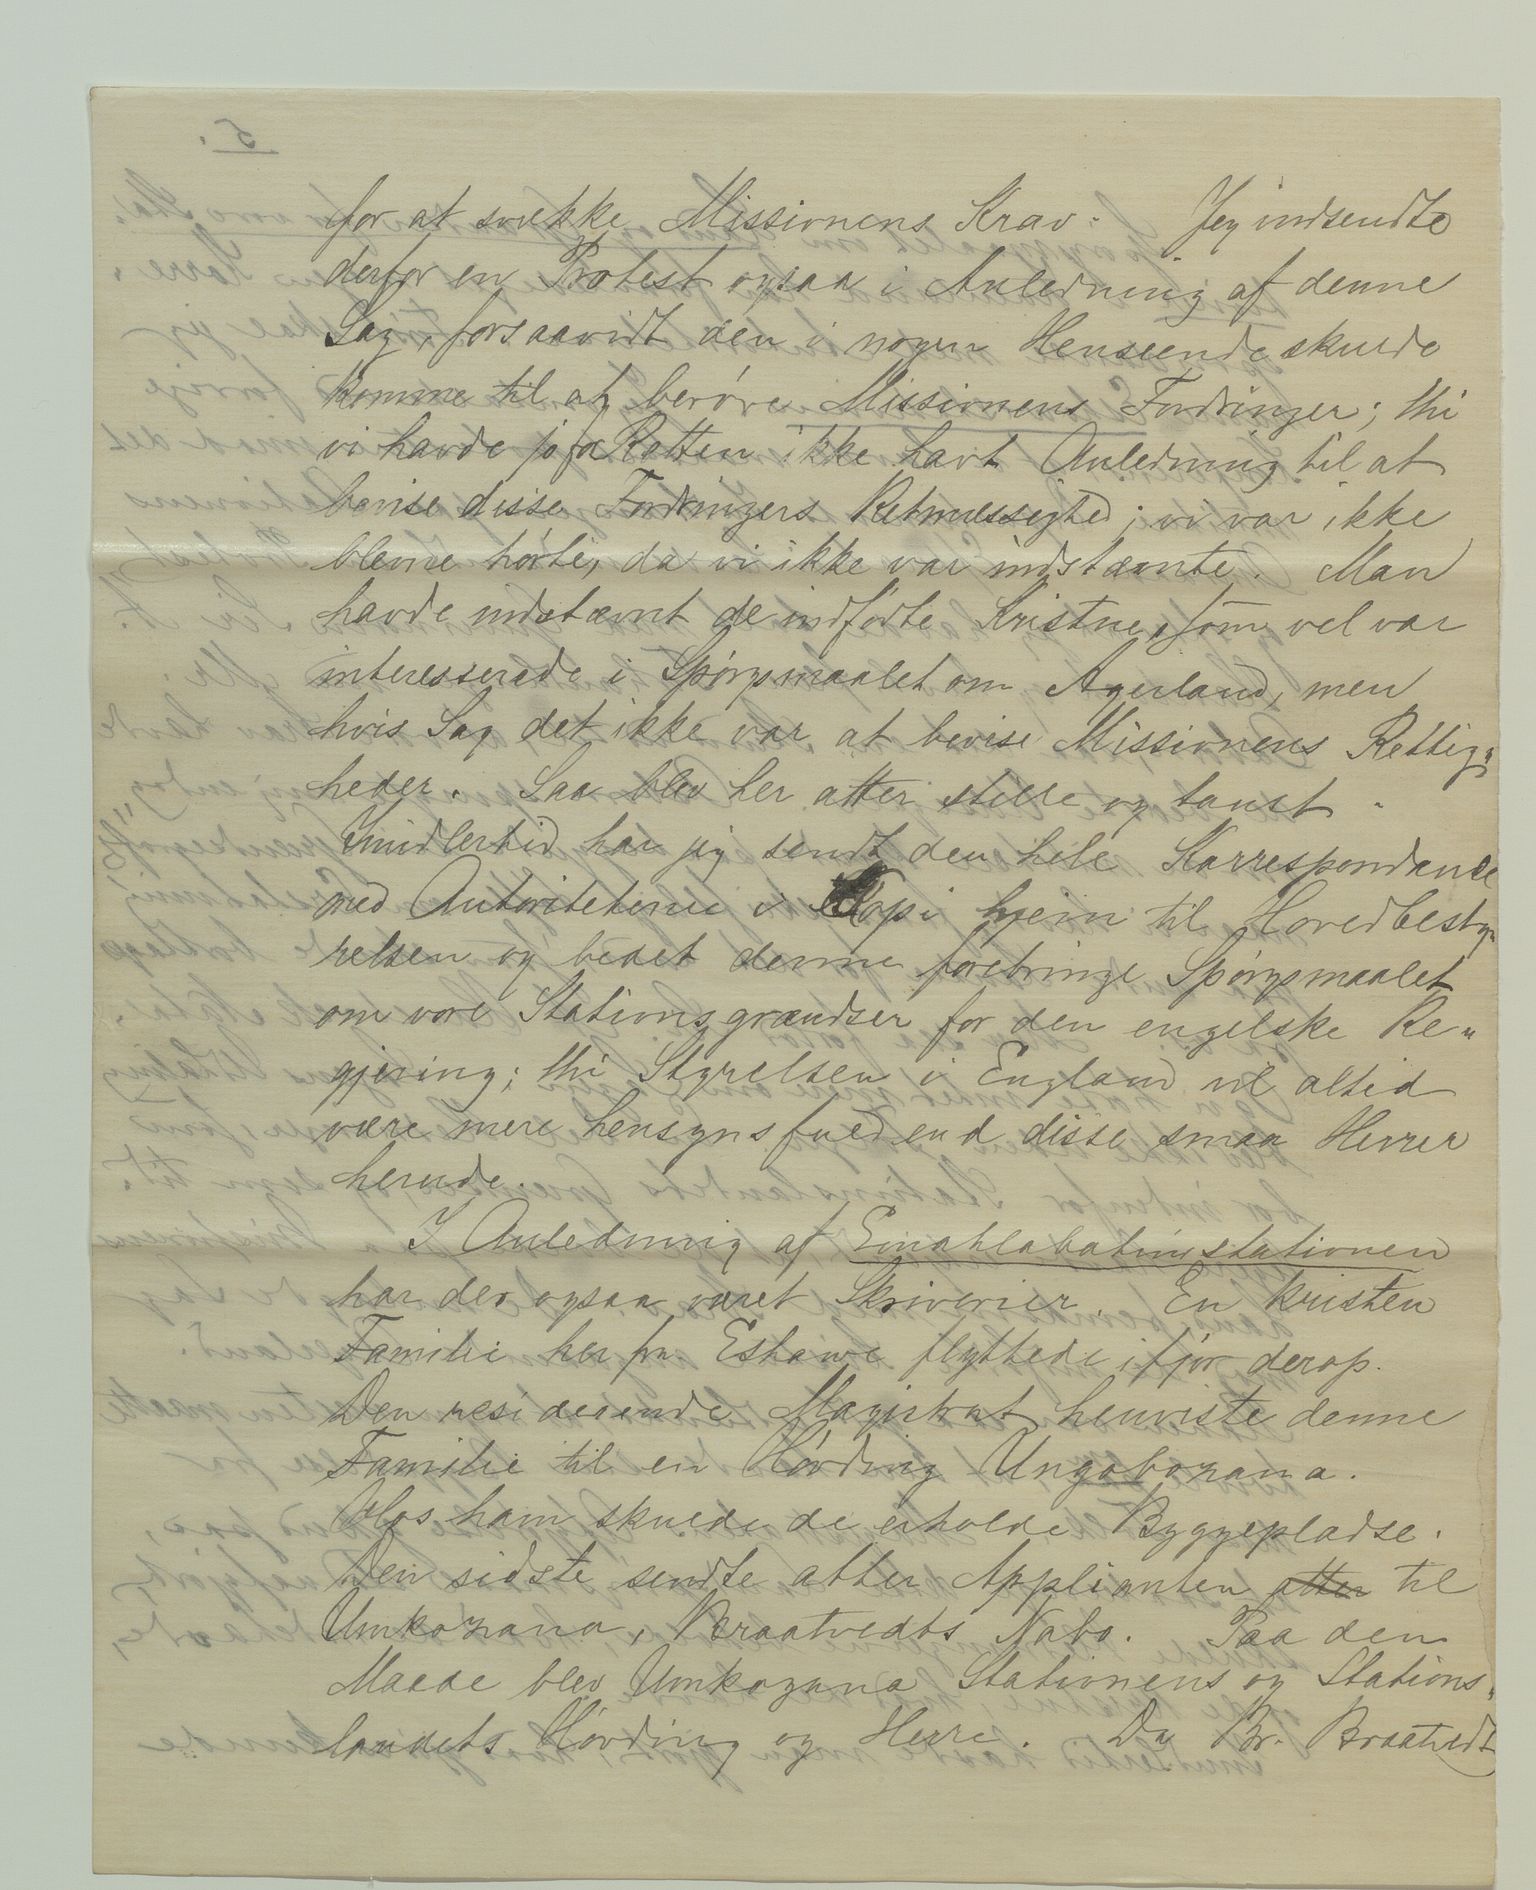 for at svække Missionens Krav. Jeg indsendte
derfor en Protest ogsaa i Anledning af denne
Sag, forsaavidt den i nogen Henseende skulde
komme til at berøre Missionens Fordringer; thi
vi havde jo for Retten ikke havt Anledning til at
bevise disse Fordringers Retmæssighed; vi var ikke
blevne hørte, da vi ikke var indstævnte. Man
havde indstævnt de indfødte Kristne, som vel var
interesserede i Spørgsmaalet om Agerland, men
hvis Sag det ikke var at bevise Missionens Rettig„
heder. Saa blev her atter stille og taust.
Imidlertid har jeg sendt den hele Korrespondance
med Autoriteterne i Kopi hjem til Hovedbesty„
relsen og bedet denne frembringe Spørgsmaalet
om vore Stationsgrændser for den engelske Re„
gjering; thi Styrelsen i England vil altid
være mere hensynsfuld end disse smaa Herrer
herude.
I Anledning af Emahlabatinistationen
har der ogsaa været Skriverier. En kristen
Familie her fra Eshowe flyttede ifjor derop.
Den residerende Magistrat henviste denne
Familie til en Høvding Ungobozana.
Hos ham skulde de erholde Byggepladse.
Den sidste sendte atter Applianten atter til
Umkozana, Braatvedts Nabo. Paa den
Maade blev Umkozana Stationens og Stations„
landets Høvding og Herre. Da Br. Braatvedt